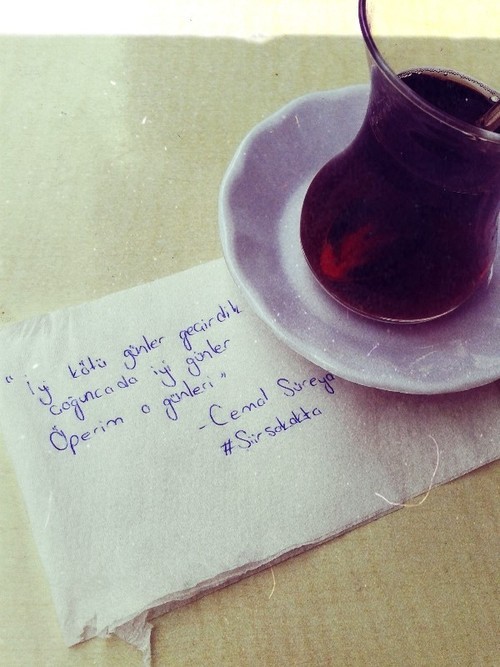 "İy kötü günler geçirdik
Çoğuncada iyi günler
Öperim o günleri"
-Cemal Süreya
#Şiirsokakta